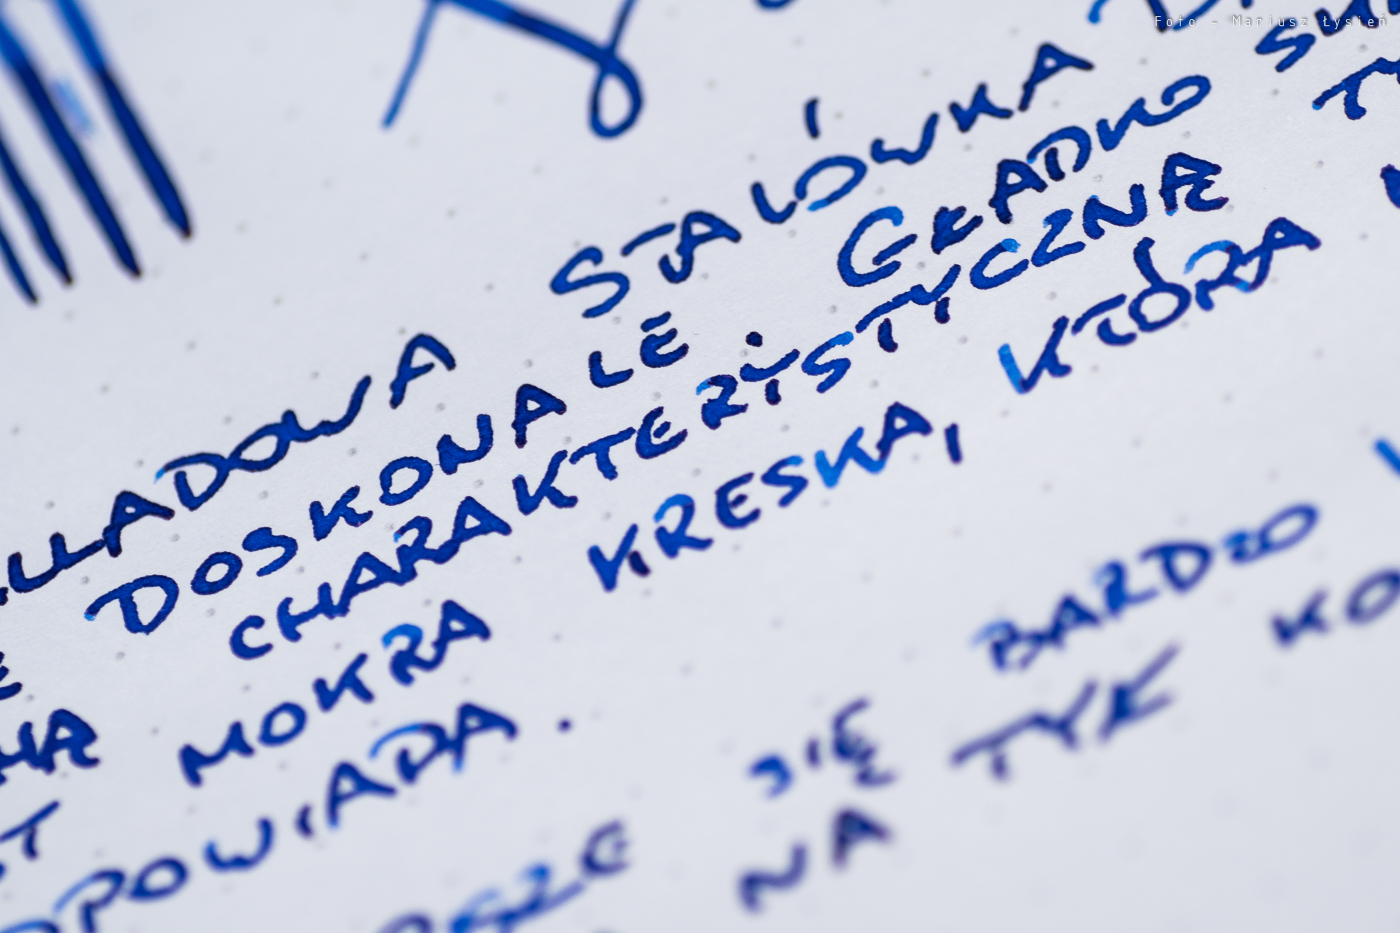 Foto - Mariusz Łysień
ALLADOWA STALÓWKA
DOSKONALE GŁADKO
CHARAKTERYSTYCZNA
MOKRA KRESKA, KTÓRA
DPOWIADA.
SIĘ BARDZO
NA TYK KO